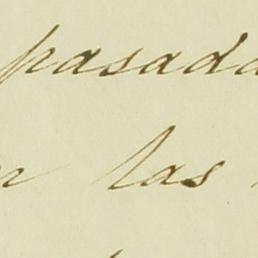 pasada
las